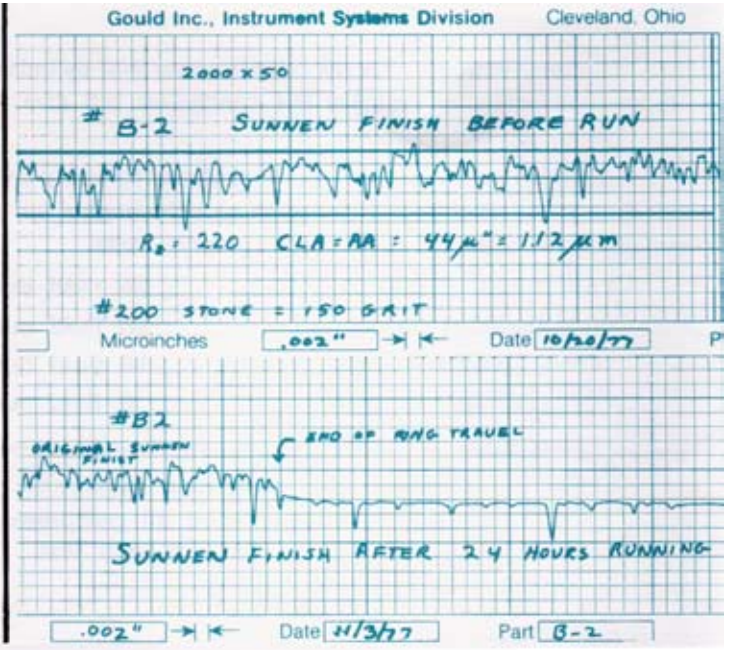 Gould Inc., Instrument Systems Division Cleveland, Ohio
2000 x 50
# B-2 SUNNEN FINISH BEFORE RUN
= 220 CLA = AA = 44 μ" = 1.12 μm
#200 STONE = 150 GRIT
Microinches .002" Date 10/20/77 P
#B2
END OF RING TRAVEL
ORIGINAL SUNNEN
FINIST
SUNNEN FINISH AFTER 24 HOURS RUNNING
.002" Date 11/3/77 Part B-2